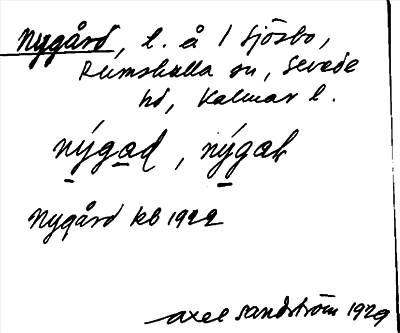 Nygård, l. å / Sjösbo,
Rumskulla sn, Sevede
hd, Kalmar l.
nýgad, nýgak
Nygård kb 1922
Axel Sandström 1929